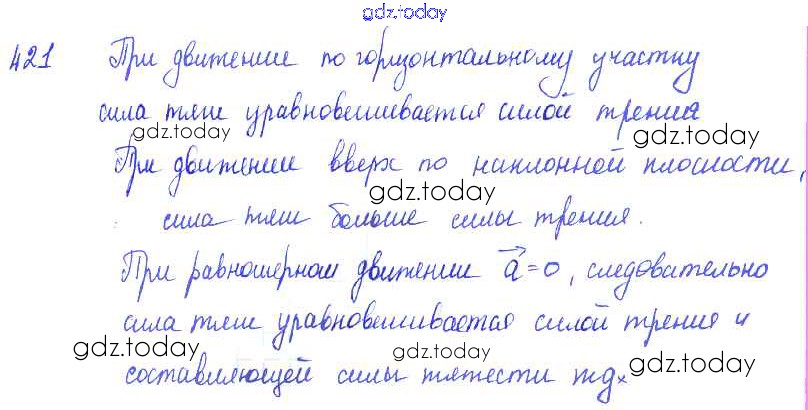 gdz.today
421 При движении по горизонтальному участку
сила тяги уравновешивается силой трения
gdz.today gdz.today
При движении вверх по наклонной плоскости,
gdz.today
сила тяги больше силы трения.
При равномерном движении a⃗=0, следовательно
сила тяги уравновешивается силой трения и
gdz.today gdz.today gdz.today
составляющей силы тяжести mgₓ